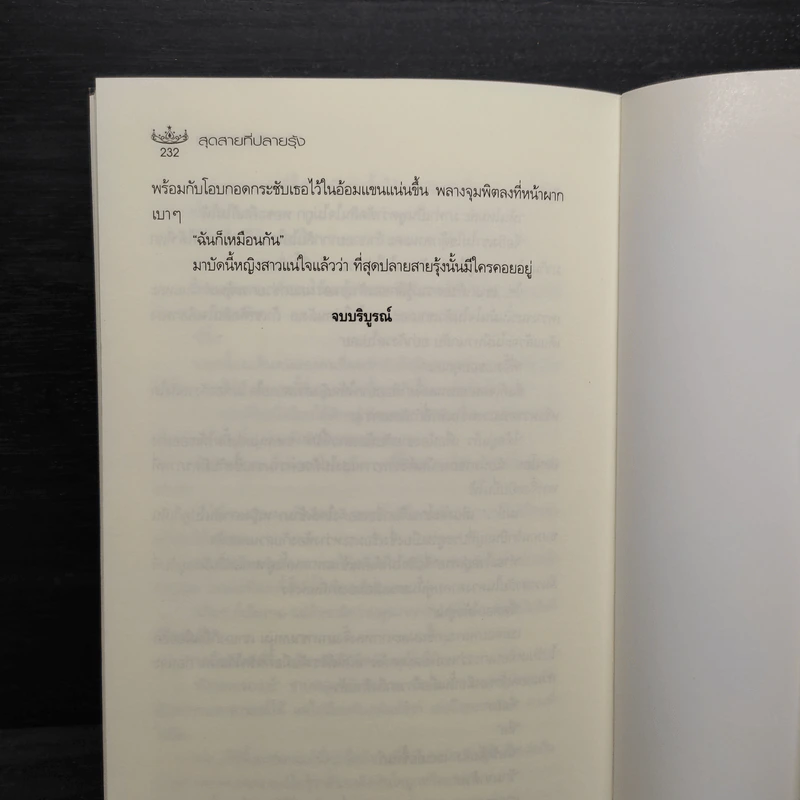 สุดสายที่ปลายรุ้ง
232
พร้อมกับโอบกอดกระชับเธอไว้ในอ้อมแขนแน่นขึ้น พลางจุมพิตลงที่หน้าผาก
เบาๆ
"ฉันก็เหมือนกัน"
มาบัดนี้หญิงสาวแน่ใจแล้วว่า ที่สุดปลายสายรุ้งนั้นมีใครคอยอยู่
จบบริบูรณ์